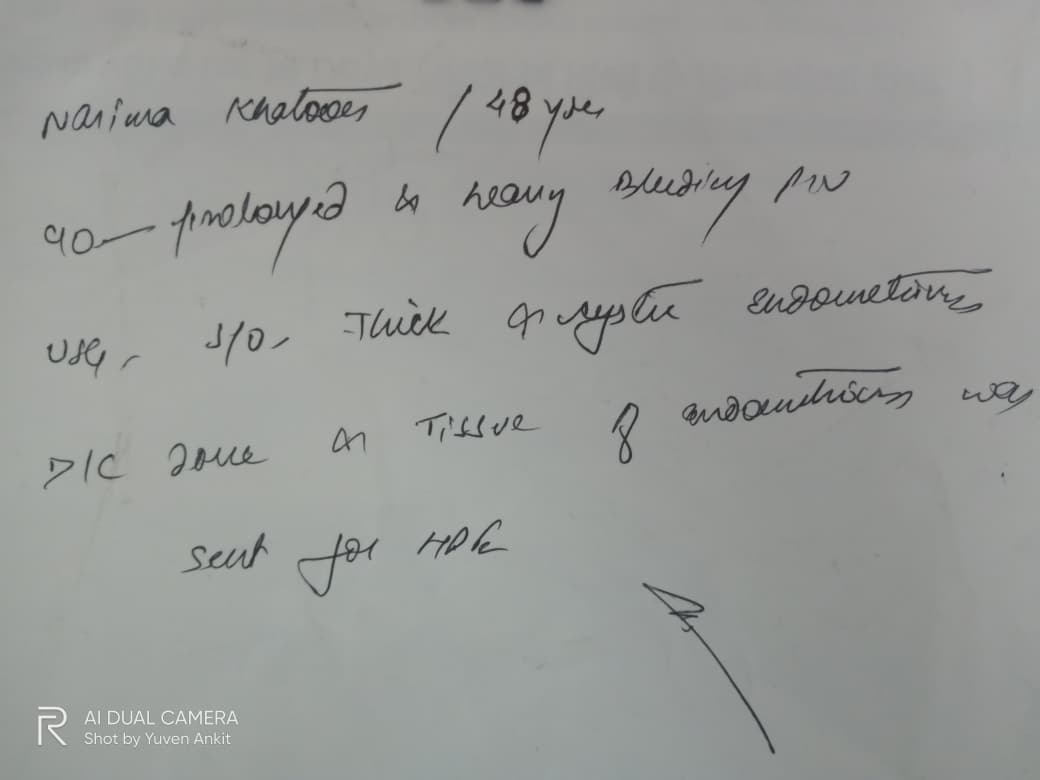 Narima Khatoon / 48 yrs
90— prolonged & heavy Bleeding P/V
USG, S/O, Thick & cystic endometrium
D/C done & Tissue of endometrium was
sent for HPE
AI DUAL CAMERA
Shot by Yuven Ankit